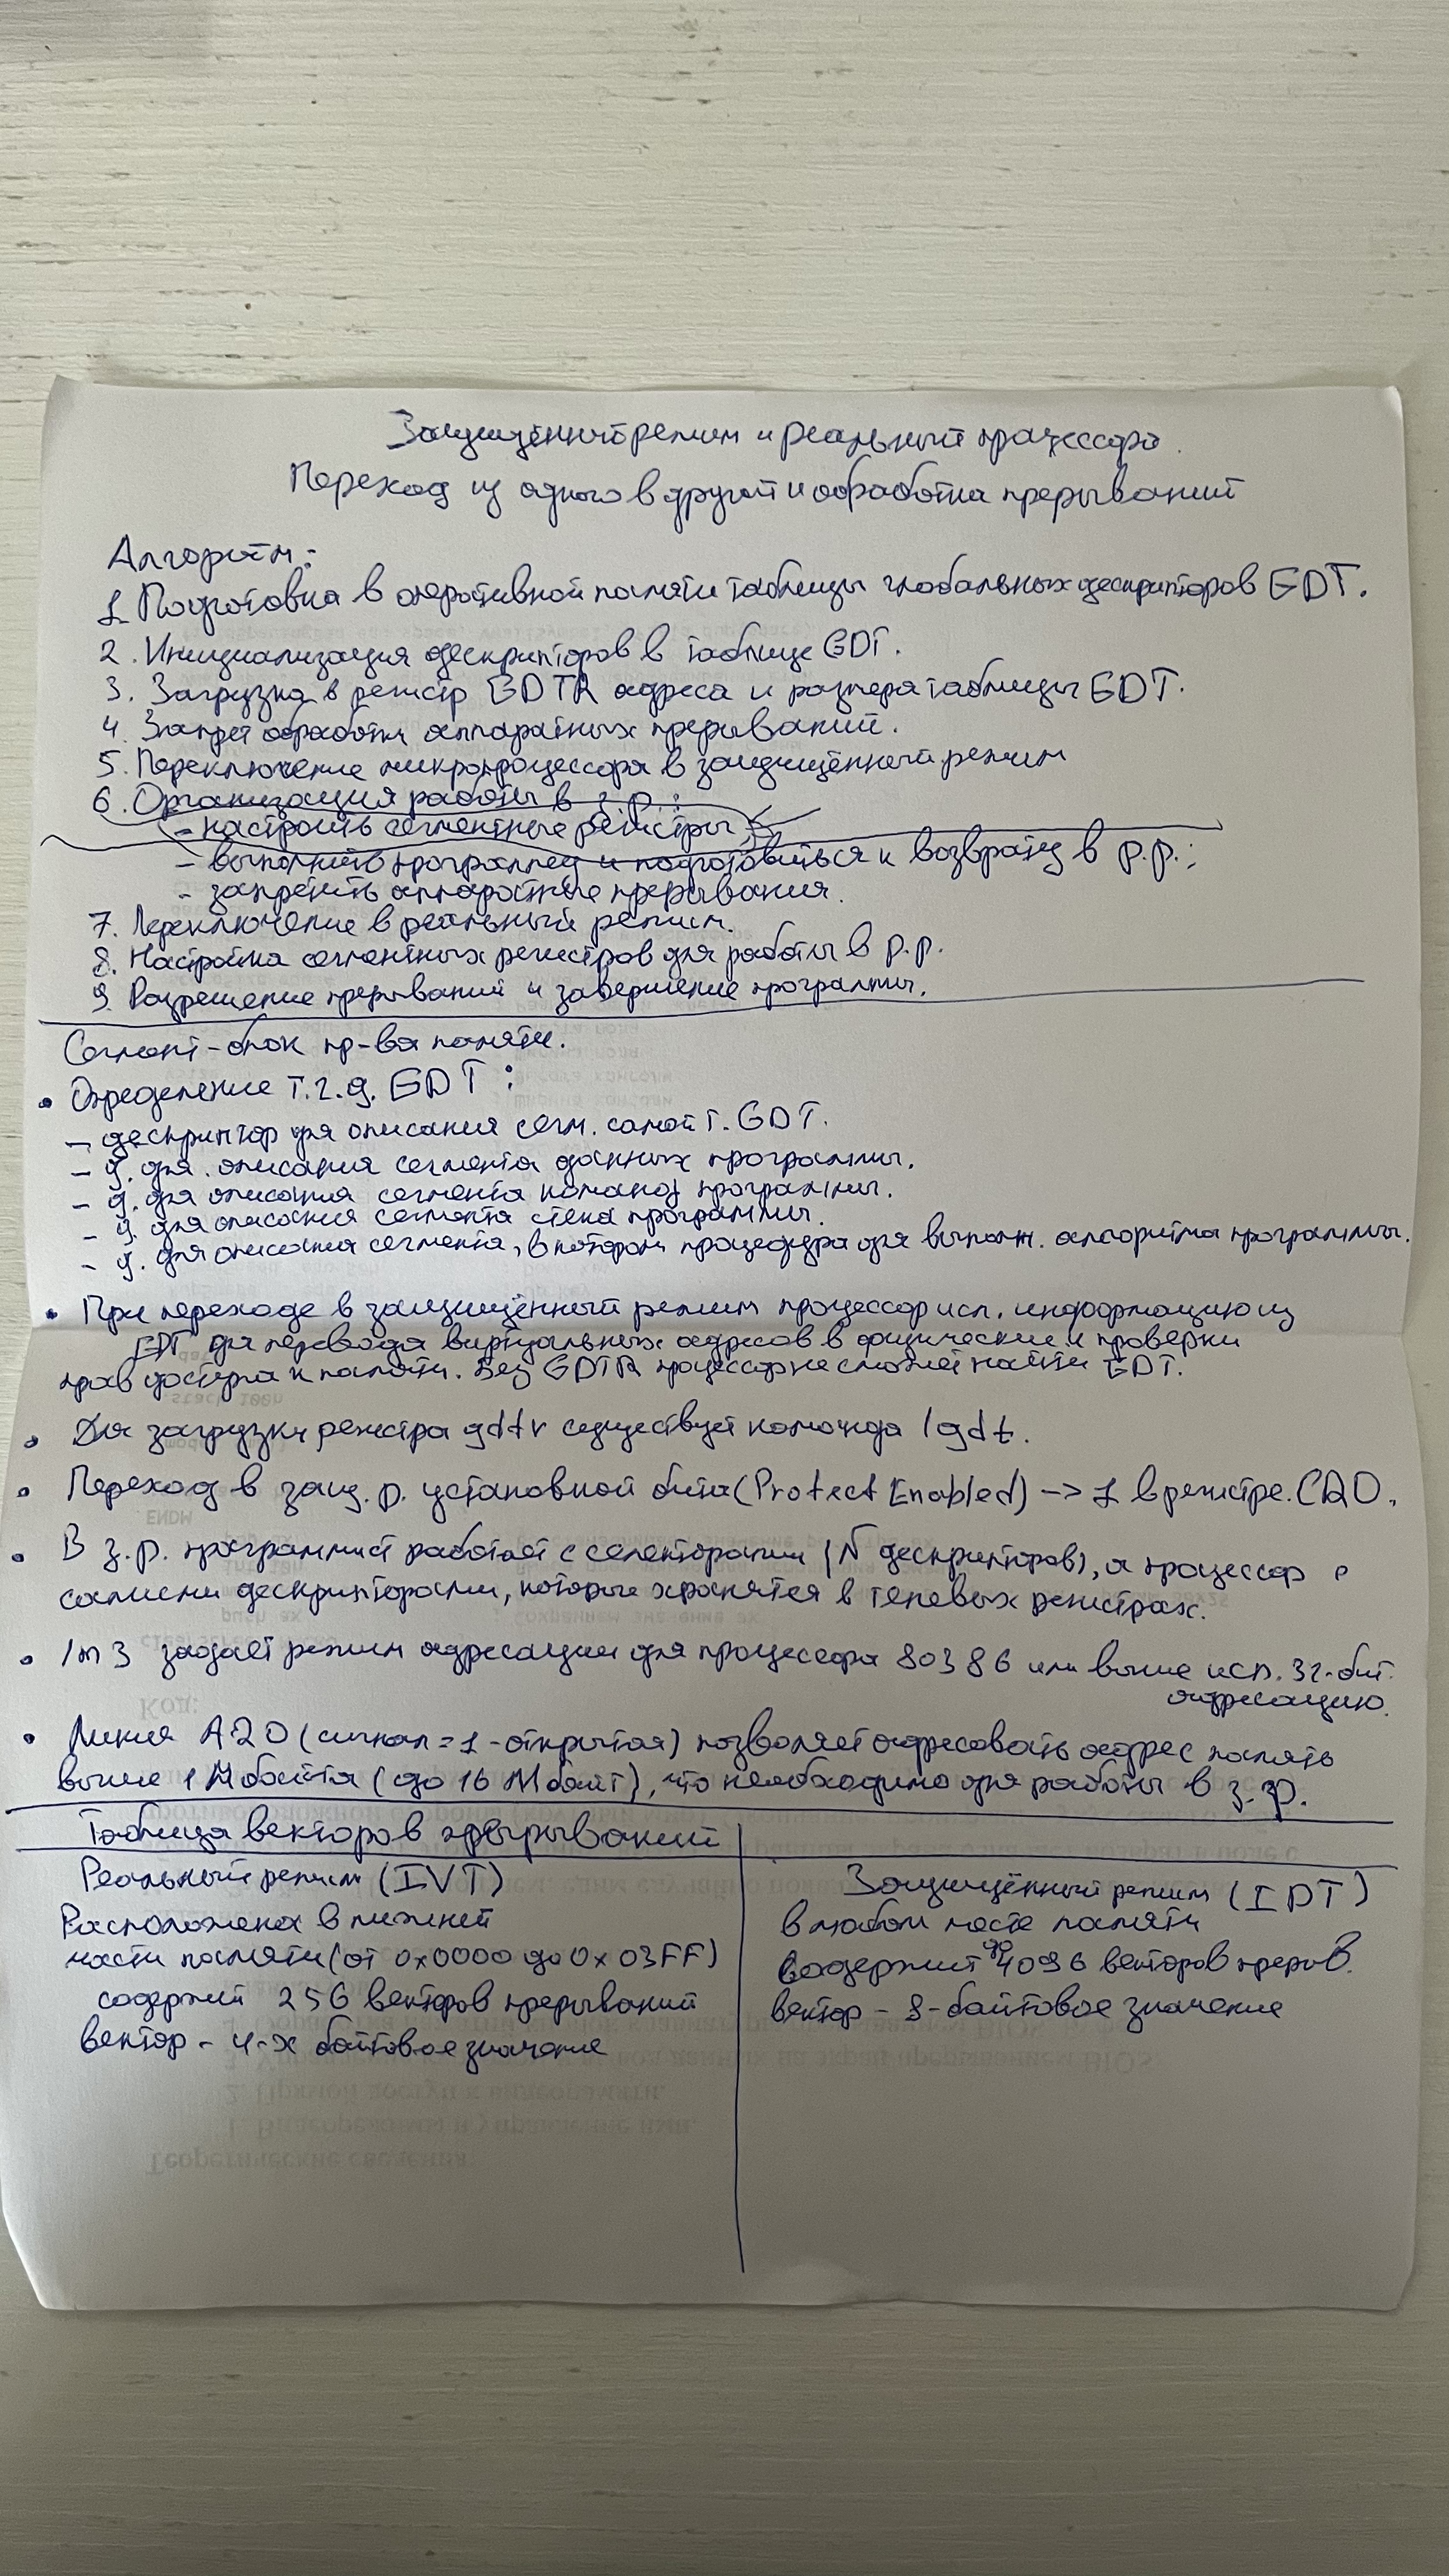 Защищённый режим и реальный процессора.
Переход из одного в другой и обработка прерываний
Алгоритм:
1. Подготовка в оперативной памяти таблицы глобальных дескрипторов GDT.
2. Инициализация дескрипторов в таблице GDT.
3. Загрузка в регистр GDTR адреса и размера таблицы GDT.
4. Запрет обработки аппаратных прерываний.
5. Переключение микропроцессора в защищённый режим
6. Организация работы в з.р.:
- настроить сегментные регистры;
- выполнить программу и подготовиться к возврату в р.р.;
- запретить аппаратные прерывания.
7. Переключение в реальный режим.
8. Настройка сегментных регистров для работы в р.р.
9. Разрешение прерываний и завершение программы.
Сегмент - блок пр-ва памяти.
• Определение т.г.д. GDT:
- дескриптор для описания сегм. самой т. GDT.
- д. для описания сегмента данных программы.
- д. для описания сегмента команд программы.
- д. для описания сегмента стека программы.
- д. для описания сегмента, в котором процедура для выполн. алгоритма программы.
• При переходе в защищённый режим процессор исп. информацию из
GDT для перевода виртуальных адресов в физические и проверки
прав доступа к памяти. Без GDTR процессор не сможет найти GDT.
• Для загрузки регистра gdtr существует команда lgdt.
• Переход в защ. р. установкой бита (Protect Enabled) -> 1 в регистре CR0.
• В з.р. программист работает с селекторами (N дескрипторов), а процессор с
самими дескрипторами, которые хранятся в теневых регистрах.
• задаёт режим адресации для процессора 80386 или выше исп. 32-бит.
адресацию.
• Линия A20 (сигнал = 1 - открытая) позволяет адресовать адрес память
выше 1 Мбайта (до 16 Мбайт), что необходимо для работы в з.р.
Таблица векторов прерываний
Реальный режим (IVT)
Расположена в нижней
части памяти (от 0x0000 до 0x03FF)
содержит 256 векторов прерываний
вектор - 4-х байтовое значение
Защищённый режим (IDT)
в любом месте памяти
содержит до 4096 векторов прерыв.
вектор - 8-байтовое значение